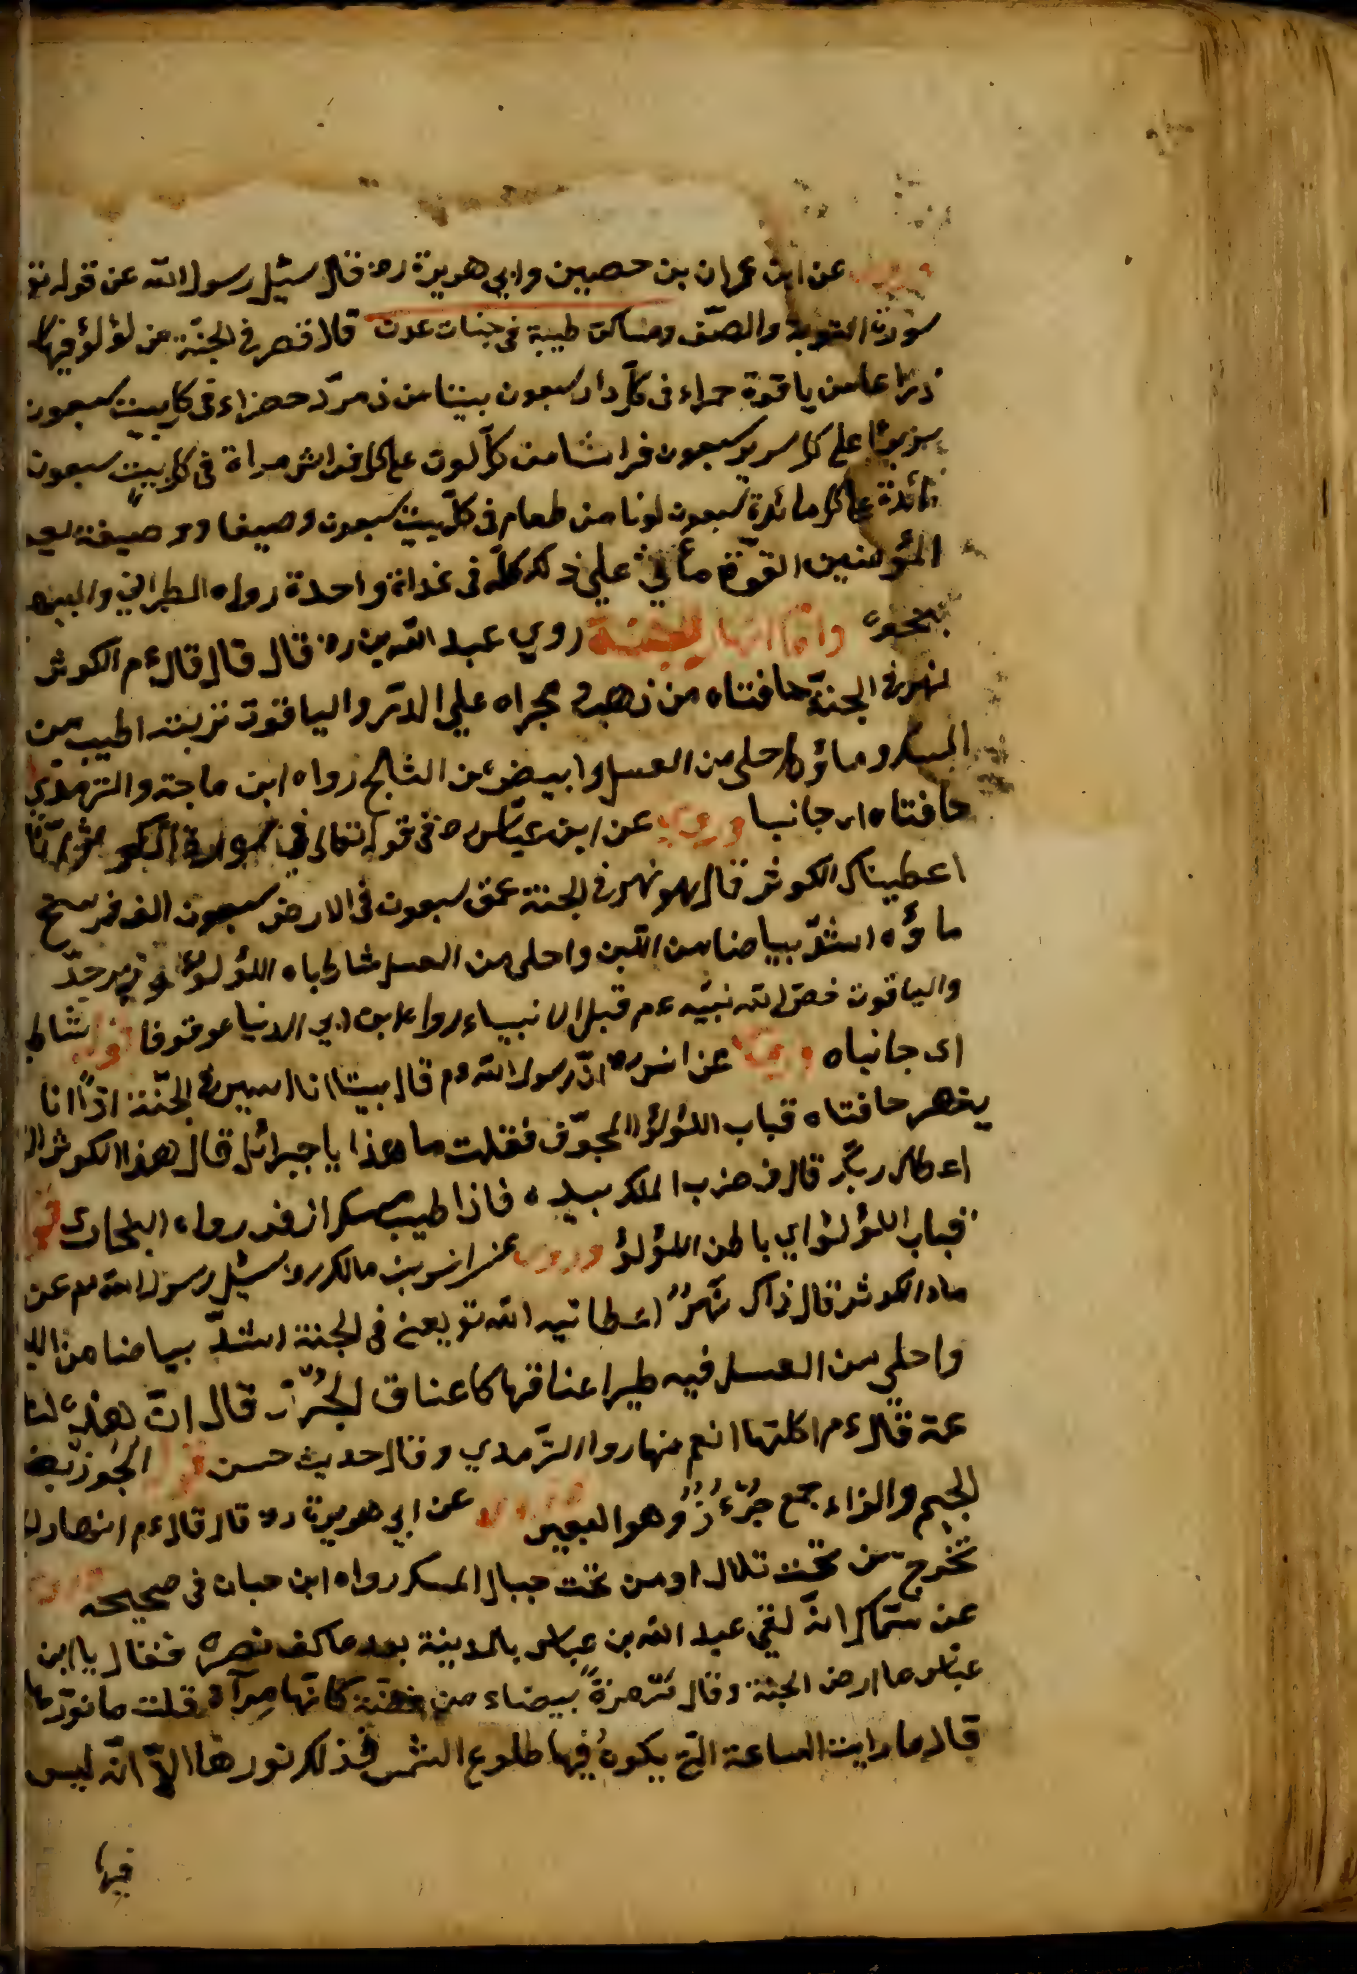 وروي عن ابن عمران بن حصين وابي هريرة رض قال سئل رسول الله عن قوله تع
سورة التوبة والصف ومساكن طيبة في جنات عدن قال قصر في الجنة من لؤلؤ فيها
دارا من ياقوتة حمراء في كل دار سبعون بيتا من زمرد خضراء في كل بيت سبعون
سريرا على كل سرير سبعون فراشا من كل لون على كل فراش مراة في كل بيت سبعون
مائدة على كل مائدة سبعون لونا من طعام في كل بيت سبعون وصيفا ووصيفة
المؤمنين القوة ما على ذلك كله في غداة واحدة رواه الطبراني والبيه
بنحوه واما انهار الجنة روي عبد الله بن رض قال قال قال ءم الكوثر
نهر في الجنة حافتاه من ذهب ومجراه علي الدر والياقوت تربته اطيب من
المسك وماؤه احلى من العسل وابيض من الثلج رواه ابن ماجة والترمذي
حافتاه اي جانبا وروي عن ابن عباس رض في قوله تعالى في سورة الكوثر انا
اعطيناك الكوثر قال هو نهر في الجنة عمق سبعون في الارض سبعون الف فرسخ
ماؤه اشد بياضا من اللبن واحلى من العسل شاطباه اللؤلؤ وزبرجد
والياقوت خص الله نبيه ءم قبل الانبياء رواه ابن ابي الدنيا موقوفا قوله شاط
اي جانباه وروي عن انس رض ان رسول الله ءم قال بيتا انا اسير في الجنة اذا انا
ينهر حافتاه قباب اللؤلؤ المجوف فقلت ما هذا يا جبرائل قال هذا الكوثر ال
اعطاك ربك قال فضرب الملك بيده فاذا طيب مسك اذفر رواه البخاري قوله
قباب اللؤلؤ اي باطن اللؤلؤ وروي عن انس بن مالك رض سئل رسول الله ءم عن
ماء الكوثر قال ذاك نهر اعطانيه الله تع يعني في الجنة اشد بياضا من الل
واحلي من العسل فيه طير اعناقها كاعناق الجزر قال ان هذه لنا
عمة قال ءم اكلتها انعم منها رواه الترمدي وقال حديث حسن قوله الجزر بض
الجيم والزاء جمع جزء زر وهو البعير وروي عن ابي هريرة رض قال قال ءم انهار ال
تخرج من تحت تلال او من تحت جبال المسك رواه ابن حبان في صحيحه وروي
عن سماك انه لقي عبد الله بن عباس بالمدينة بعد ما كف بصره فقال يا ابن
عباس ما ارض الجنة وقال مرمرة بيضاء من فضة كانها مرآة قلت ما نورها
قال ما رايت الساعة التي يكون فيها طلوع الشمس فذلك نورها الا انه ليس
فيها